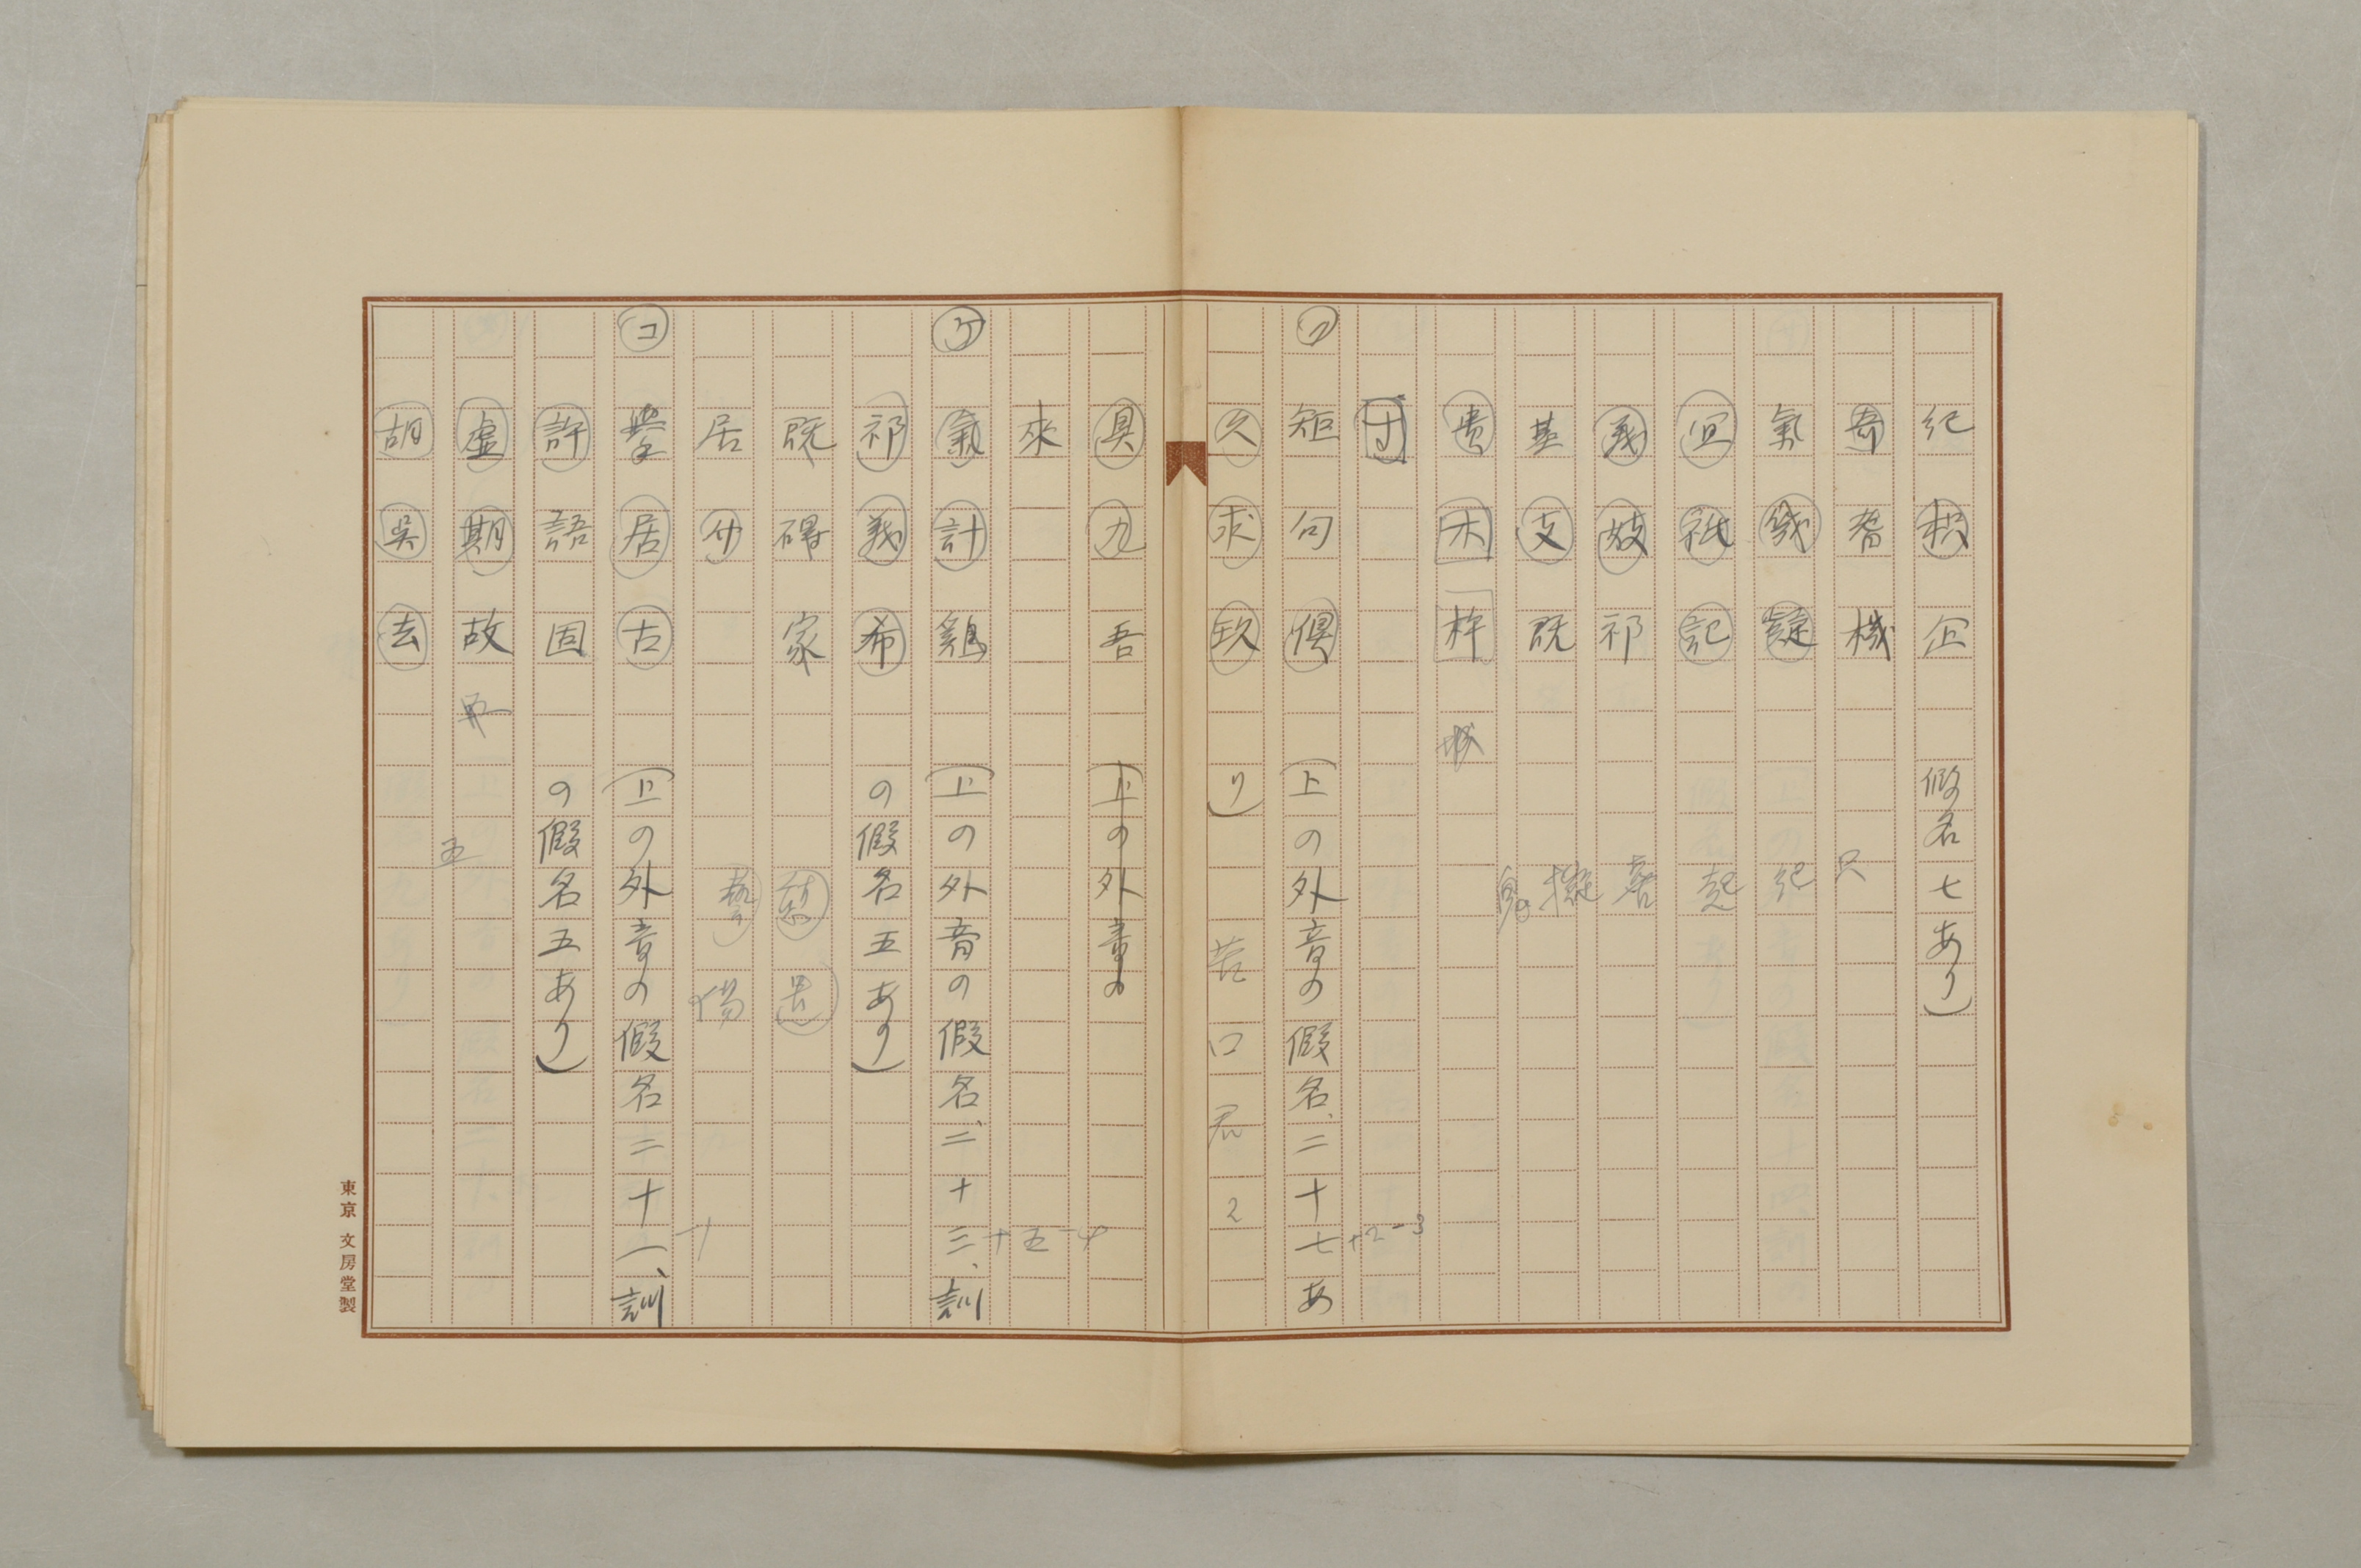 紀 枳 企 假名七あり)
奇 耆 機
氣 幾 擬 紀
宜 祇 記 起
義 妓 祁
基 支 既 擬
貴 木 杵 城
寸
ク 矩 句 倶 (上の外音の假名、二十七あ +2-3
久 求 玖 り) 苦 口 君 2
具 九 吾 (上の外音の
來
ケ 氣 計 鷄 (上の外音の假名、二十三、訓 +五-4
祁 義 希 の假名五あり)
既 碍 家
居
コ 擧 居 古 (上の外音の假名二十一、訓
許 語 固 の假名五あり)
虚 期 故 五
胡 呉 去
東京 文房堂製